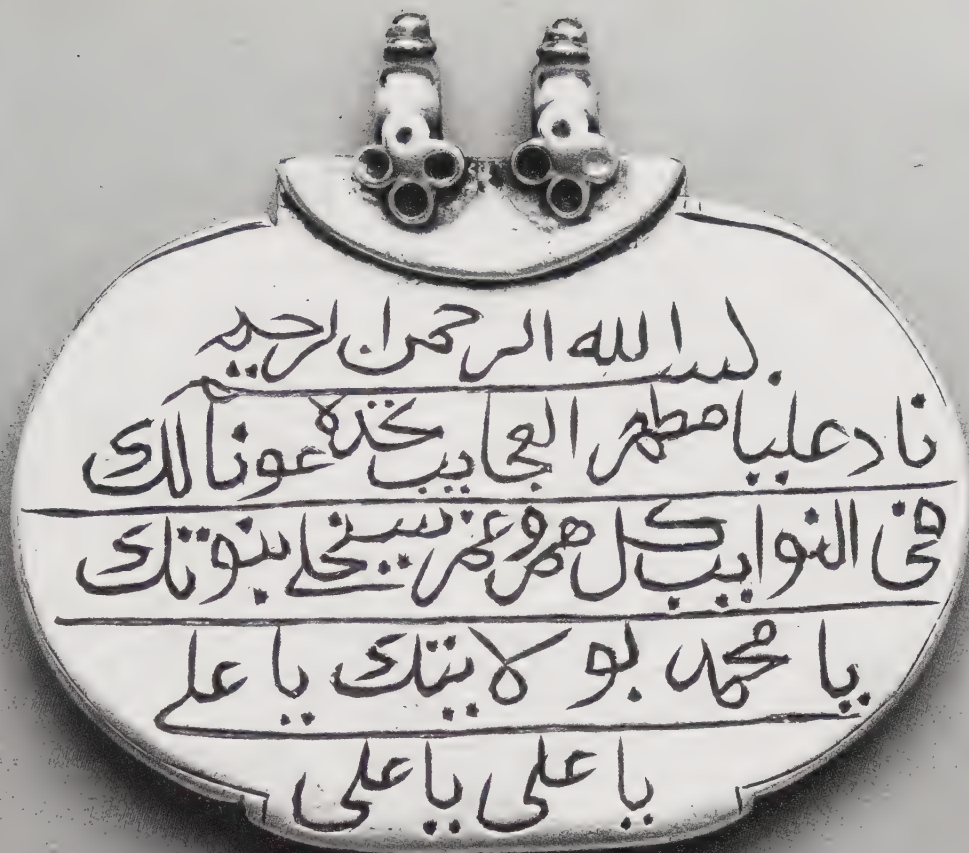 بسم الله الرحمن الرحيم
ناد عليا مظهر العجايب تجده عونا لك
في النوايب كل هم وغم سينجلي بنبوتك
يا محمد بولايتك يا علي
يا علي يا علي